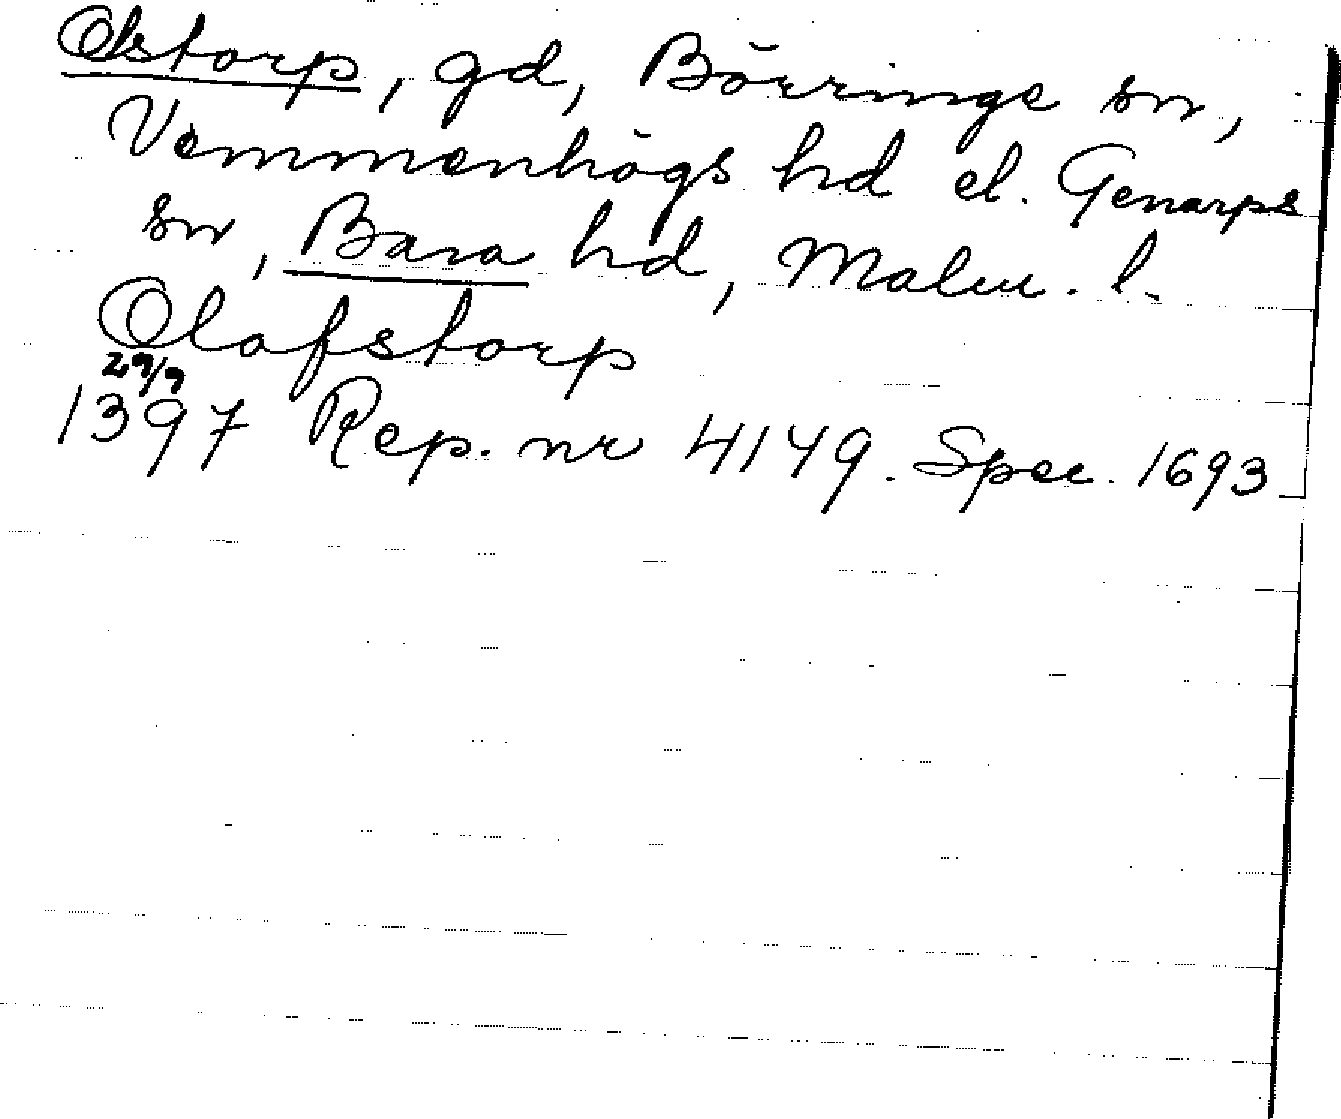 Olstorp, gd, Börringe sn,
Vemmenhögs hd el. Genarps
sn, Bara hd, Malm. l.
Olafstorp
29/9
1397 Rep. nr 4149. Spec. 1693